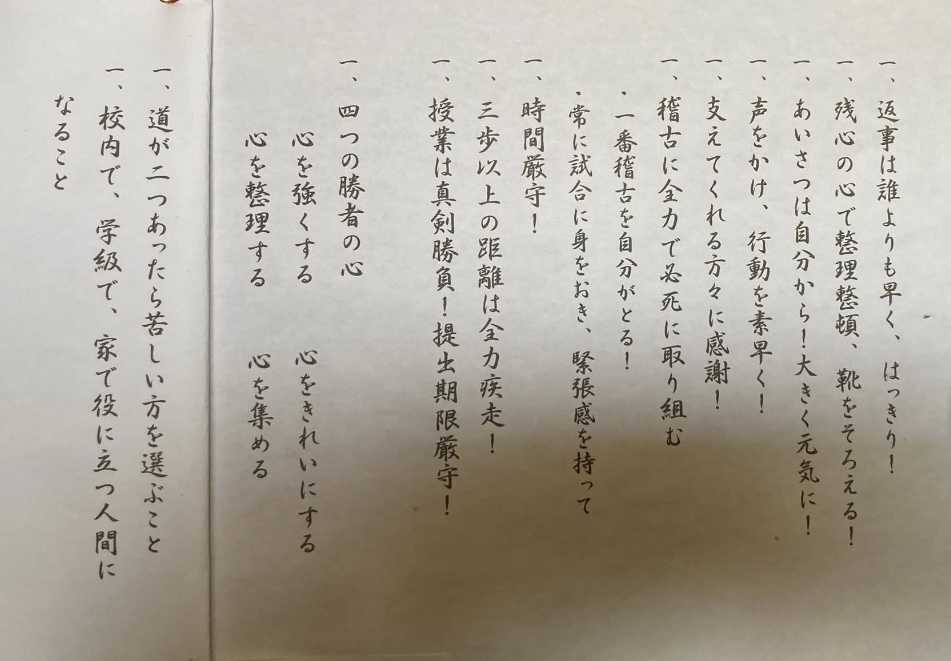 一、返事は誰よりも早く、はっきり！
一、残心の心で整理整頓、靴をそろえる！
一、あいさつは自分から！大きく元気に！
一、声をかけ、行動を素早く！
一、支えてくれる方々に感謝！
一、稽古に全力で必死に取り組む
・一番稽古を自分がとる！
・常に試合に身をおき、緊張感を持って
一、時間厳守！
一、三歩以上の距離は全力疾走！
一、授業は真剣勝負！提出期限厳守！
一、四つの勝者の心
心を強くする　心をきれいにする
心を整理する　心を集める
一、道が二つあったら苦しい方を選ぶこと
一、校内で、学級で、家で役に立つ人間に
なること